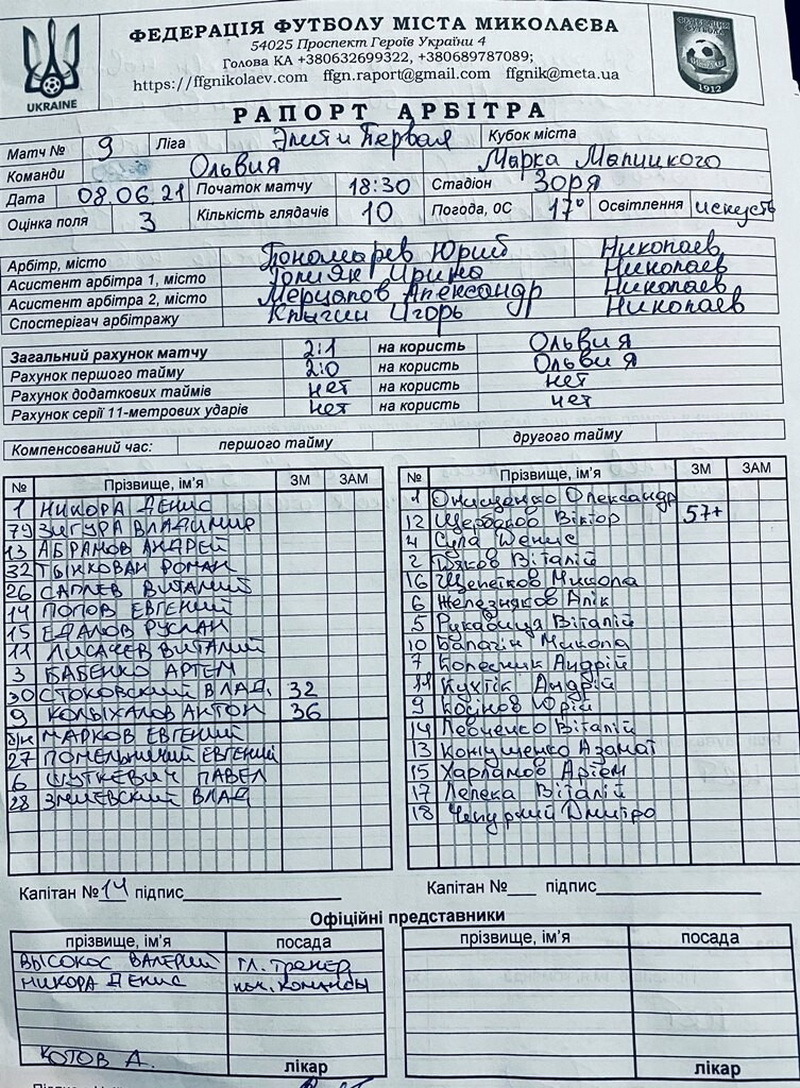 ФЕДЕРАЦІЯ ФУТБОЛУ МІСТА МИКОЛАЄВА
54025 Проспект Героїв України 4
Голова КА +380632699322, +380689787089;
https://ffgnikolaev.com ffgn.raport@gmail.com ffgnik@meta.ua
UKRAINE
1912
РАПОРТ АРБІТРА
Матч № 9 Ліга Элит и Первая Кубок міста
Команди Ольвия Марка Мапицкого
Дата 08.06.21 Початок матчу 18:30 Стадіон Зоря
Оцінка поля 3 Кількість глядачів 10 Погода, 0С 17° Освітлення искуств
Арбітр, місто Пономарев Юрий Николаев
Асистент арбітра 1, місто Ирина Николаев
Асистент арбітра 2, місто Мерцалов Александр Николаев
Спостерігач арбітражу Игорь Николаев
Загальний рахунок матчу 2:1 на користь Ольвия
Рахунок першого тайму 2:0 на користь Ольвия
Рахунок додаткових таймів нет на користь нет
Рахунок серії 11-метрових ударів нет на користь нет
Компенсований час: першого тайму другого тайму
№ Прізвище, ім'я ЗМ ЗАМ
1 НИКОРА ДЕНИС
79 ЗИГУРА ВЛАДИМИР
13 АБРАМОВ АНДРЕЙ
32 ТЫНКОВАН РОМАН
26 САПЛЕВ ВИТАЛИЙ
14 ПОПОВ ЕВГЕНИЙ
15 ЕДАЛОВ РУСЛАН
11 ЛИСАЧЕВ ВИТАЛИЙ
3 БАБЕНКО АРТЕМ
30 СТОКОВСКИЙ ВЛАД. 32
9 КОЛЫХАЛОВ АНТОН 36
б/н МАРКОВ ЕВГЕНИЙ
27 ПОМЕЛЬНИЧИЙ ЕВГЕНИЙ
6 ШУТКЕВИЧ ПАВЕЛ
28 ЗМИЕВСКИЙ ВЛАД
№ Прізвище, ім'я ЗМ ЗАМ
1 Онищенко Олександр
12 Щербаков Віктор 57+
4 Сула Денис
2 Дяков Віталій
16 Щепетков Микола
6 Железняков Алік
5 Рукавиця Віталій
10 Балагін Микола
7 Колесник Андрій
11 Кухтік Андрій
9 Косінов Юрій
14 Левченко Віталій
13 Конющенко Азамат
15 Харламов Артем
17 Лепека Віталій
18 Чепурний Дмитро
Капітан № 14 підпис
Капітан № підпис
Офіційні представники
прізвище, ім'я посада
ВЫСОКОС ВАЛЕРИЙ гл. тренер
НИКОРА ДЕНИС нач. команды
КОТОВ А. лікар
прізвище, ім'я посада
лікар